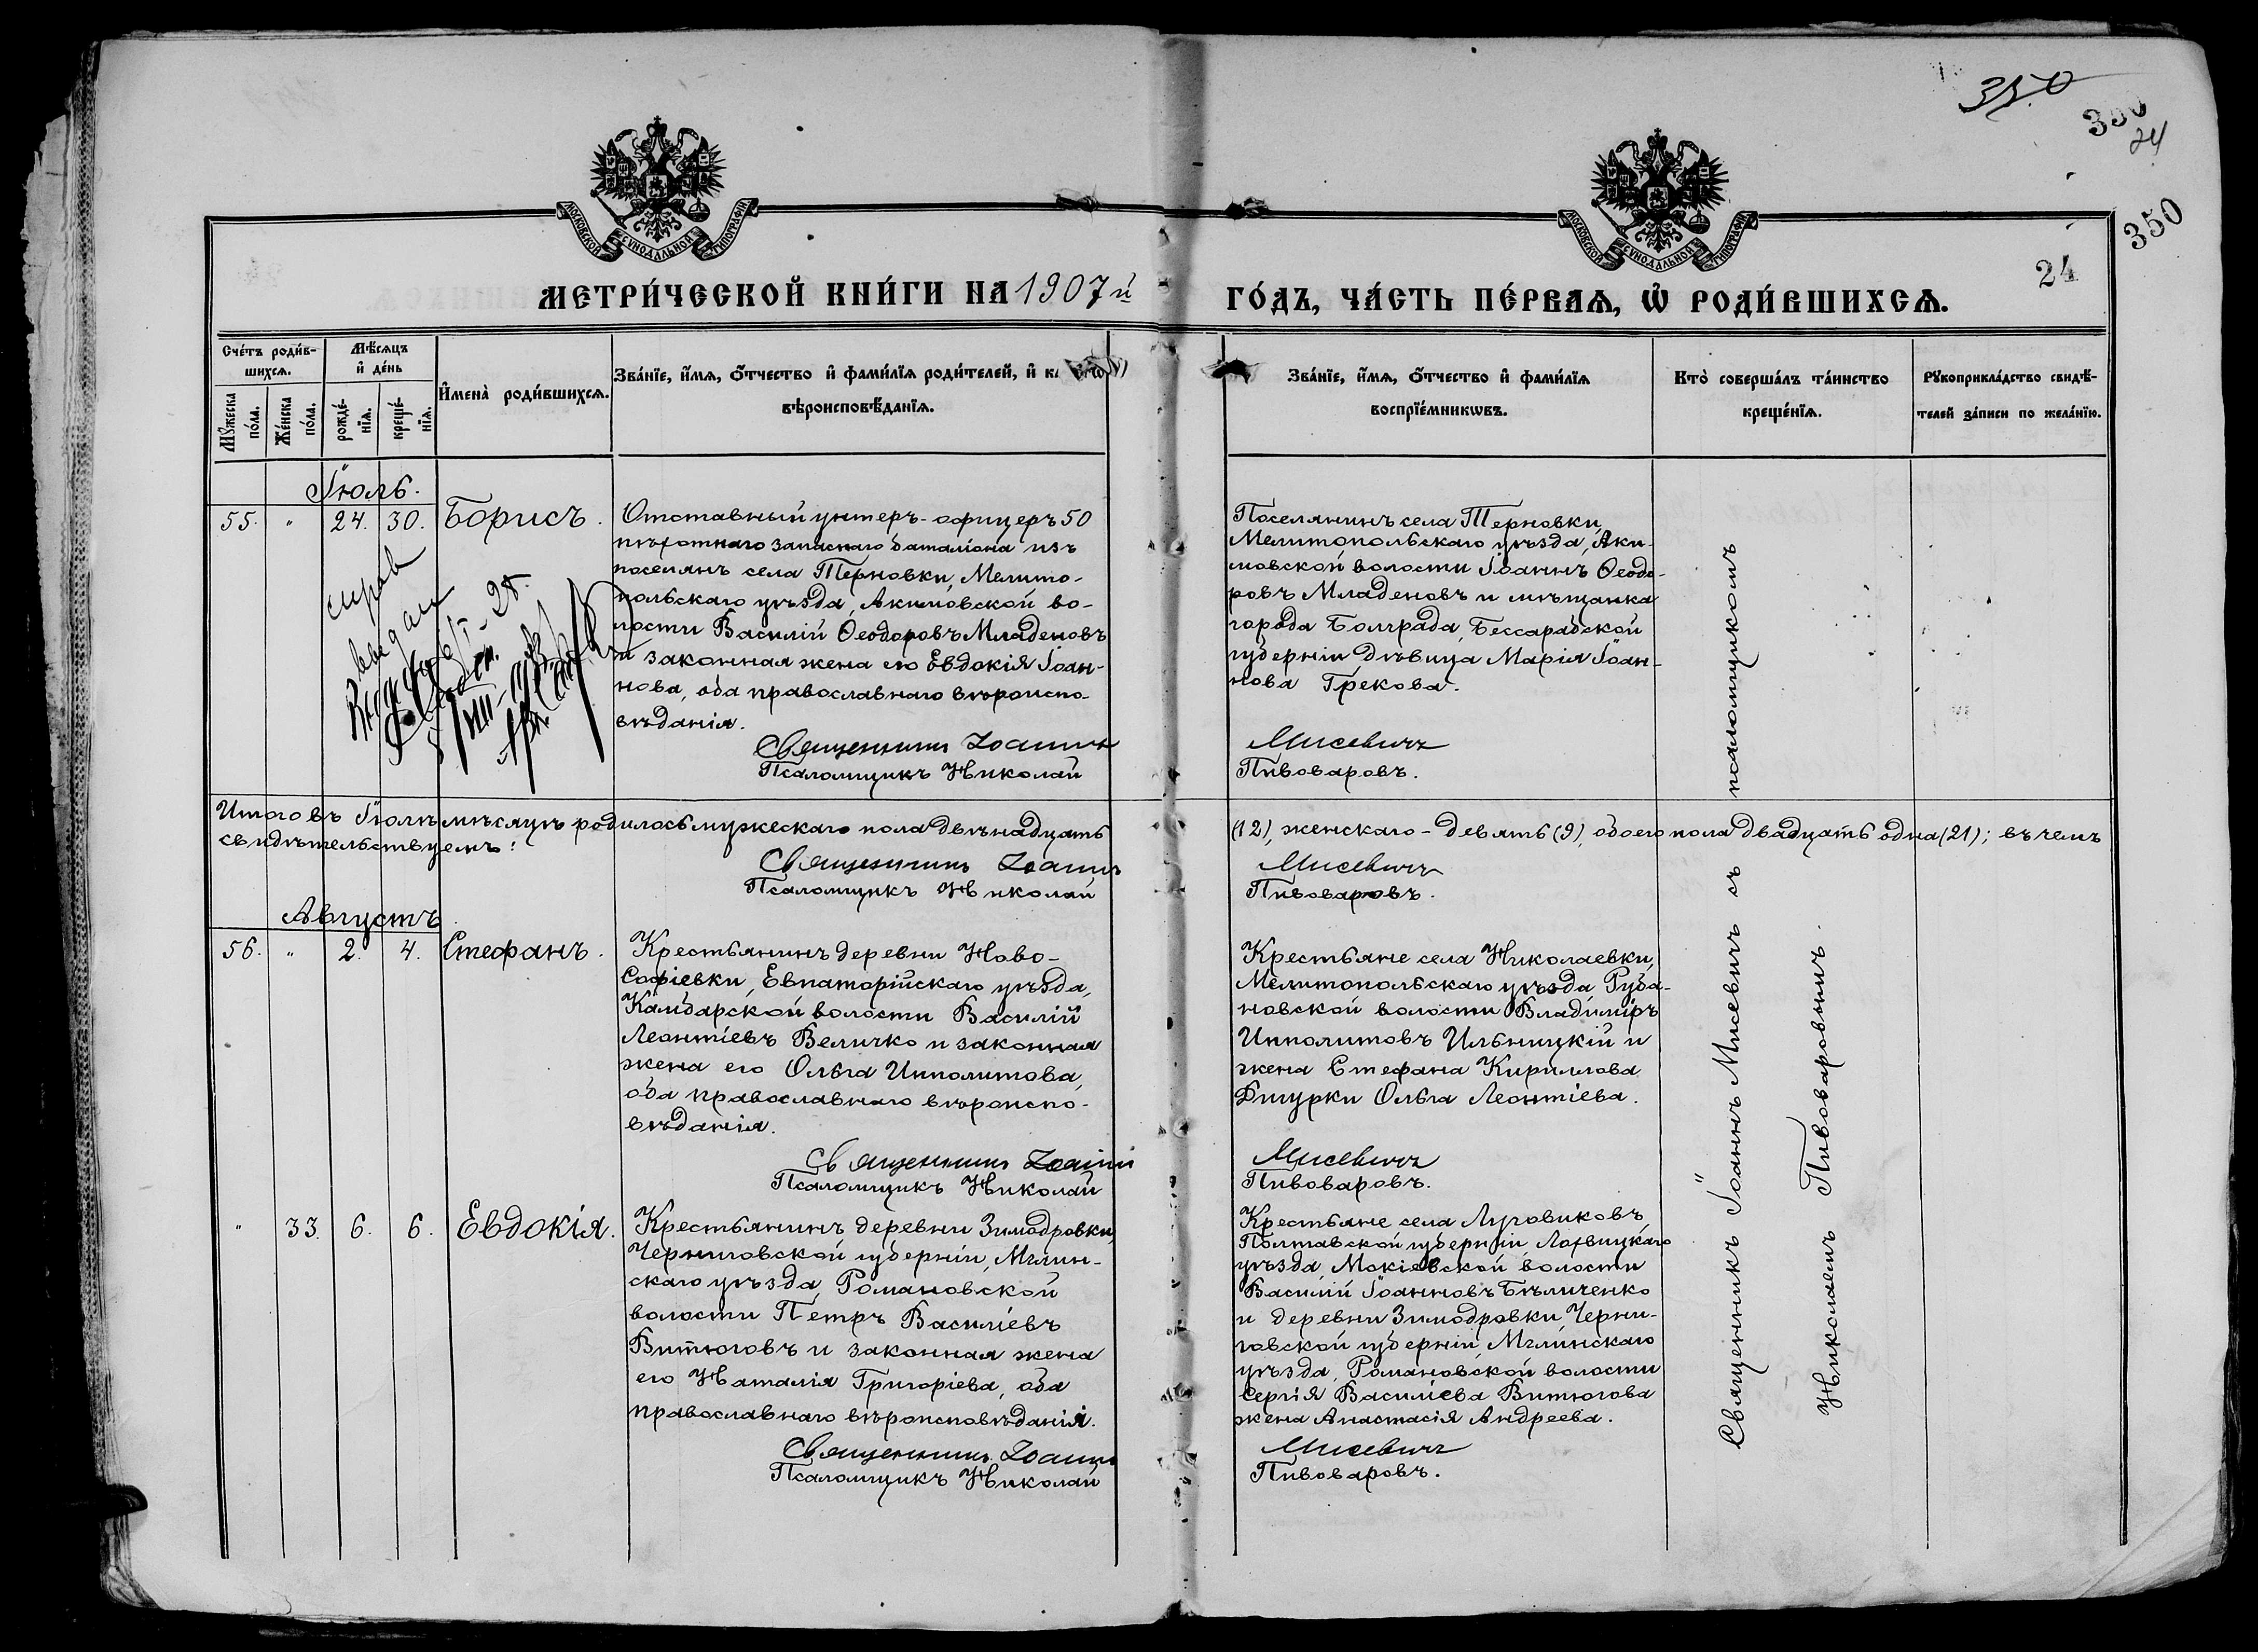 350
350
24
350
24
МОСКОВСКОЙ СѴНОДАЛЬНОЙ ТИПОГРАФІИ
МОСКОВСКОЙ СѴНОДАЛЬНОЙ ТИПОГРАФІИ
МЕТРИ́ЧЕСКОЙ КНИ́ГИ НА 1907 й
ГО́ДЪ, ЧА́СТЬ ПЕ́РВАѦ, Ѽ РОДИ́ВШИХСѦ.
Сче́тъ роди́в-
шихсѧ.
Мꙋ́жеска по́ла.
Же́нска по́ла.
Мѣ́сѧцъ
и҆ де́нь
рожде́-
нїѧ.
креще́-
нїѧ.
И҆мена̀ роди́вшихсѧ.
Зва́нїе, и҆́мѧ, ѻ҆́тчество и҆ фами́лїѧ роди́телей, и҆
вѣроисповѣ́данїѧ.
Зва́нїе, и҆́мѧ, ѻ҆́тчество и҆ фами́лїѧ
воспрїе́мникѡвъ.
Кто̀ соверша́лъ та́инство
креще́нїѧ.
Рꙋкоприкла́дство свидѣ́-
телей за́писи по жела́нїю.
Іюль.
55. " 24. 30. Борисъ.
Отставный унтеръ-офицеръ 50
пѣхотнаго запаснаго баталіона изъ
поселянъ села Терновки, Мелито-
польскаго уѣзда, Акимовской во-
лости Василій Ѳеодоровъ Младеновъ
и законная жена его Евдокія Іоан-
нова, оба православнаго вѣроиспо-
вѣданія.
Священникъ Іоаннъ
Псаломщикъ Николай
Поселянинъ села Терновки,
Мелитопольскаго уѣзда, Аки-
мовской волости Іоаннъ Ѳеодо-
ровъ Младеновъ и мѣщанка
города Болграда, Бессарабской
губерніи, дѣвица Марія Іоан-
нова Грекова.
Мисевичъ
Пивоваровъ.
Итого въ Іюлѣ мѣсяцѣ родилось мужескаго пола двѣнадцать
(12), женскаго - девять (9), обоего пола двадцать одна (21); въ чемъ
свидѣтельствуемъ:
Священникъ Іоаннъ
Псаломщикъ Николай
Мисевичъ
Пивоваровъ.
Августъ
56. " 2. 4. Стефанъ.
Крестьянинъ деревни Ново-
Софіевки, Евпаторійскаго уѣзда,
Камбарской волости Василій
Леонтіевъ Величко и законная
жена его Ольга Ипполитова,
оба православнаго вѣроиспо-
вѣданія.
Священникъ Іоаннъ
Псаломщикъ Николай
Крестьяне села Николаевки,
Мелитопольскаго уѣзда Руба-
новской волости Владиміръ
Ипполитовъ Ильницкій и
жена Стефана Кириллова
Фигурки Ольга Леонтіева.
Мисевичъ
Пивоваровъ.
" 33. 6. 6. Евдокія.
Крестьянинъ деревни Зимодровки,
Черниговской губерніи, Мглин-
скаго уѣзда, Романовской
волости Петръ Василіевъ
Витюговъ и законная жена
его Наталія Григоріева, оба
православнаго вѣроисповѣданія.
Священникъ Іоаннъ
Псаломщикъ Николай
Крестьяне села Луговиковъ,
Полтавской губерніи, Лохвицкаго
уѣзда, Мокіевской волости
Василій Іоанновъ Бѣличенко
и деревни Зимодровки, Черни-
говской губерніи, Мглинскаго
уѣзда, Романовской волости
Сергія Василіева Витюгова
жена Анастасія Андреева.
Мисевичъ
Пивоваровъ.
Священникъ Іоаннъ Мисевичъ съ псаломщикомъ
Николаемъ Пивоваровымъ.